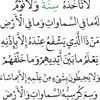 لَا تَأْخُذُهُ سِنَةٌ وَلَا نَوْمٌ
فِي السَّمٰوٰتِ وَمَا فِي الْأَرْضِ
مَنْ ذَا الَّذِي يَشْفَعُ عِنْدَهُ إِلَّا بِإِذْنِهِ
يَعْلَمُ مَا بَيْنَ أَيْدِيهِمْ وَمَا خَلْفَهُمْ
وَلَا يُحِيطُونَ بِشَيْءٍ مِنْ عِلْمِهِ إِلَّا
وَسِعَ كُرْسِيُّهُ السَّمٰوٰتِ وَالْأَرْضَ